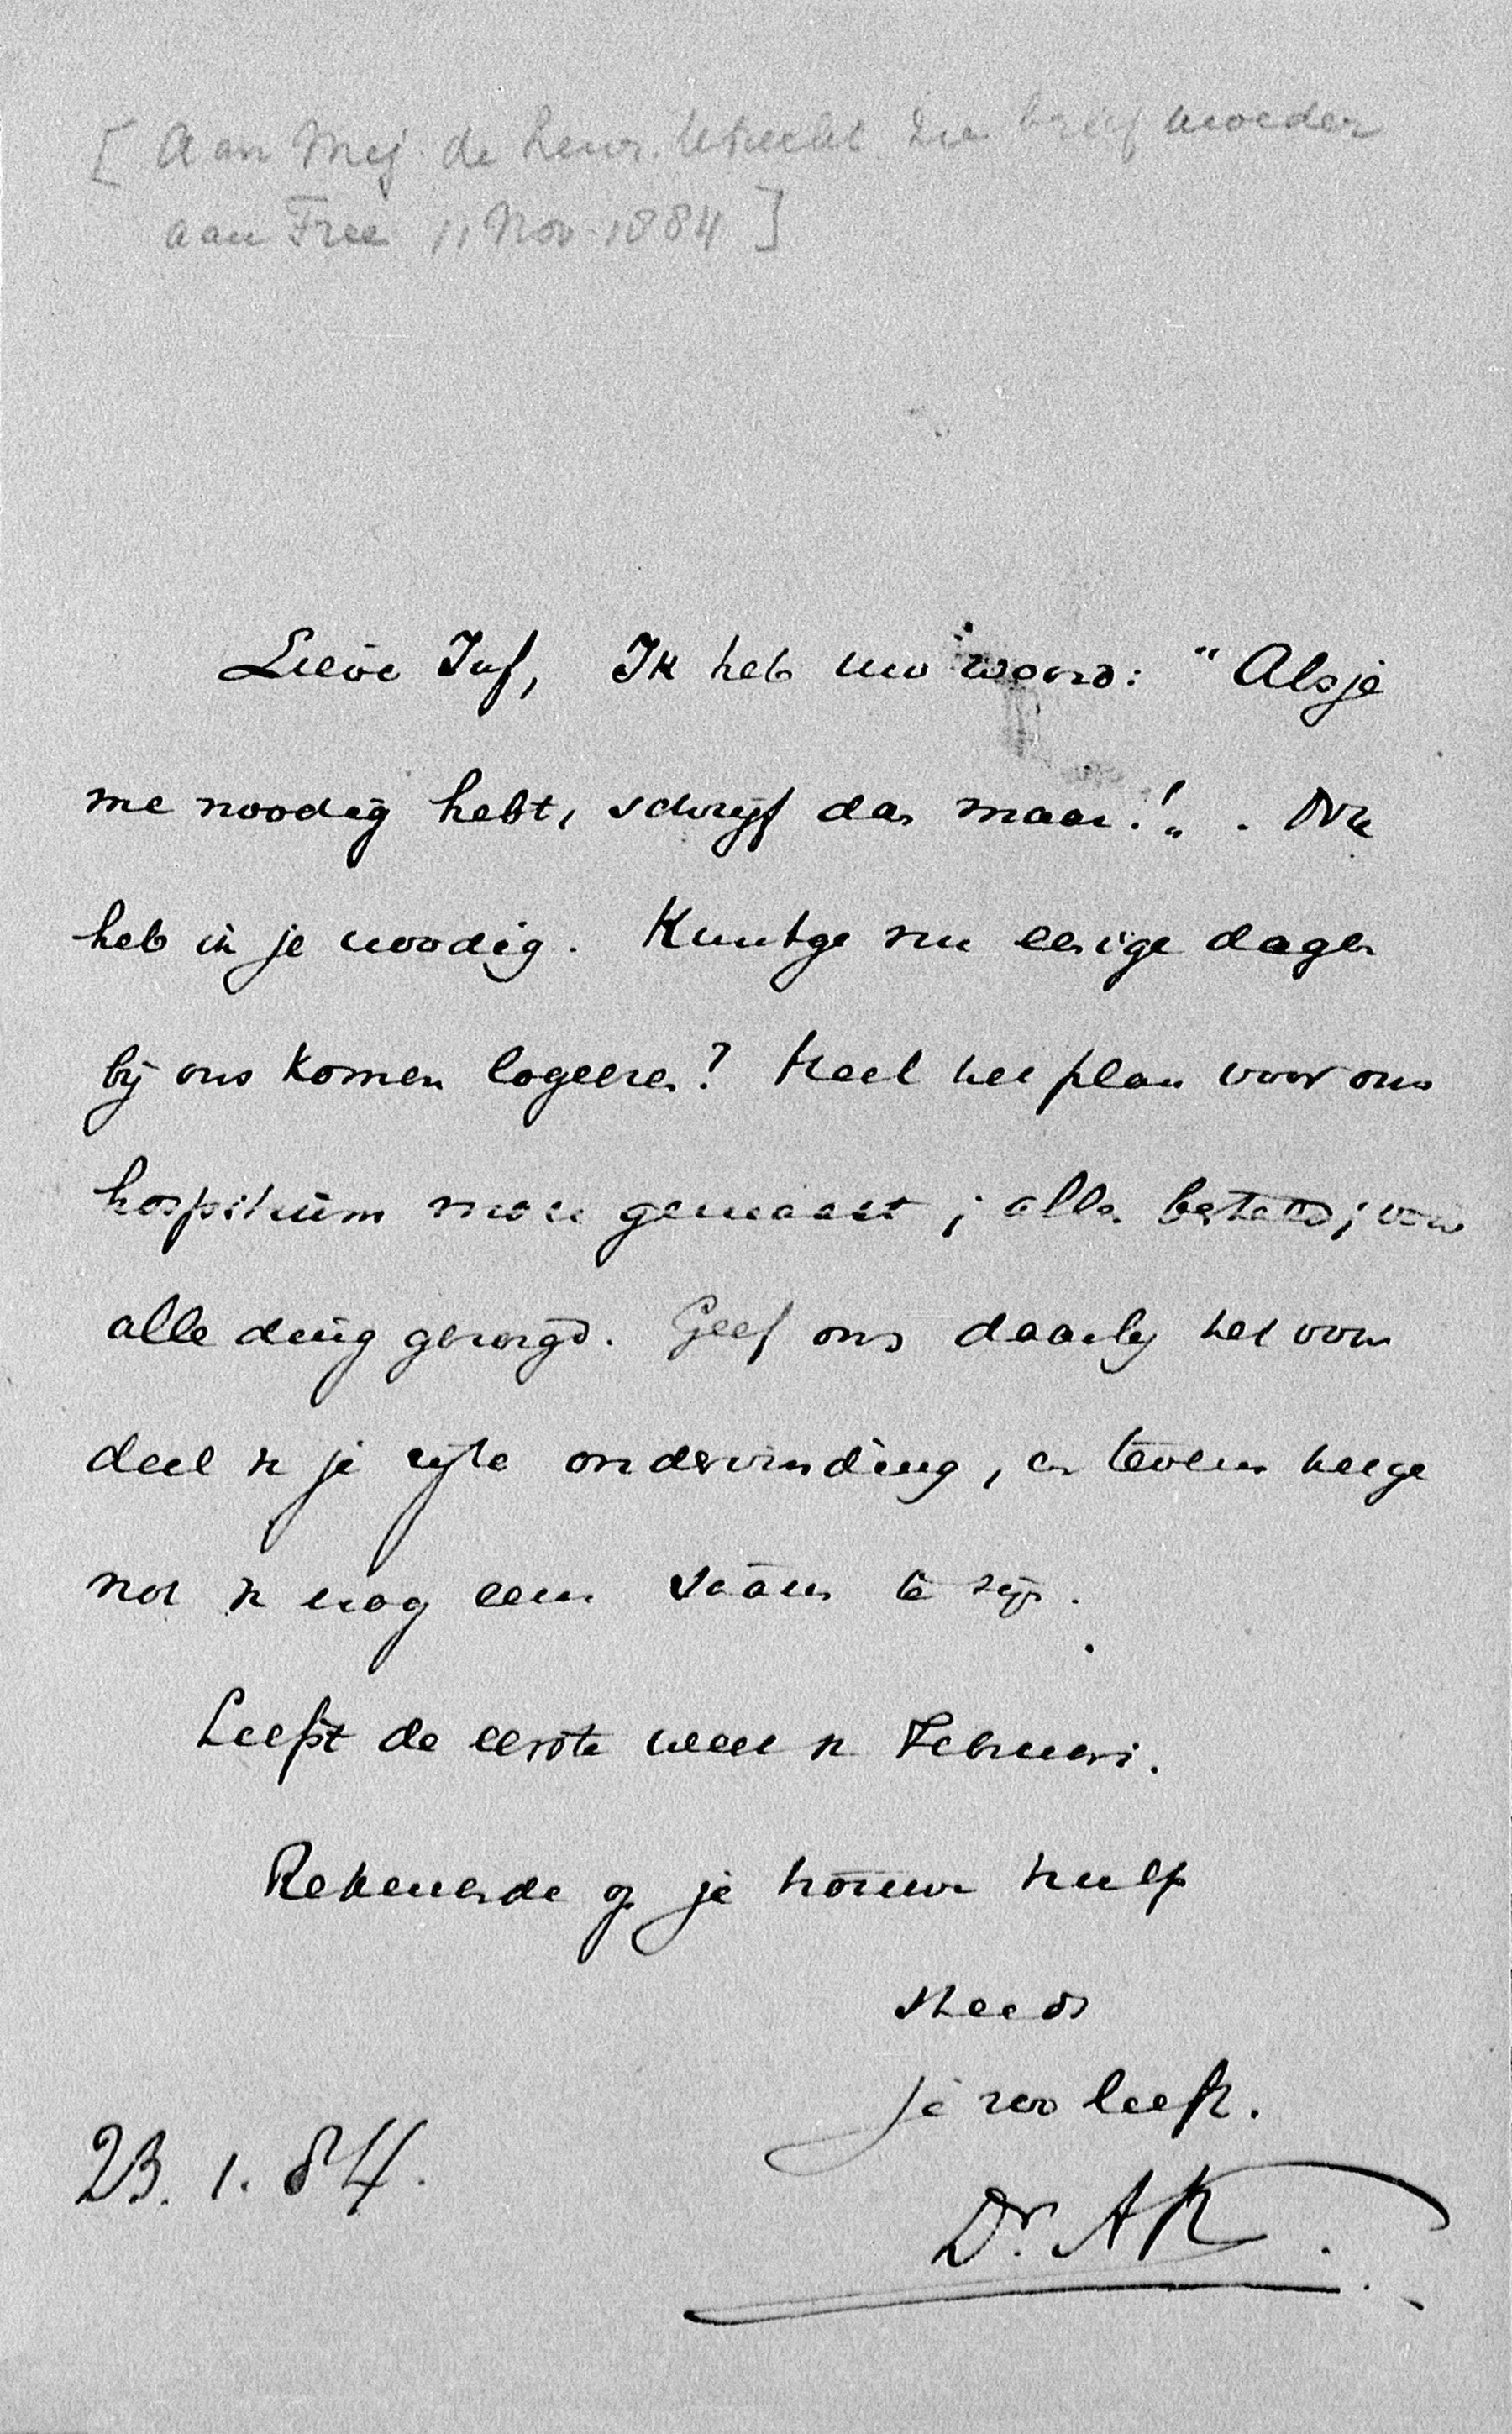 [ Aan Mej. de Leur. Utrecht. Zie brief moeder
aan Free 11 Nov. 1884 ]
Lieve Juf, Ik heb uw woord: "Als je
me noodig hebt, schrijf dan maar!„. Nu
heb ik je noodig. Kunt ge nu eenige dagen
bij ons komen logeeren? Heel het plan voor ons
hospitium moet gemaakt; alles besteld; voor
alle ding gezorgd. Geef ons daarbij het voor
deel v je rijke ondervinding, en tevens het ge
not v nog eens sáám te zijn.
Liefst de eerste week v Februari.
Rekenende op je trouwe hulp
steeds
je zoo liefh.
23. 1. 84. Dr. AK